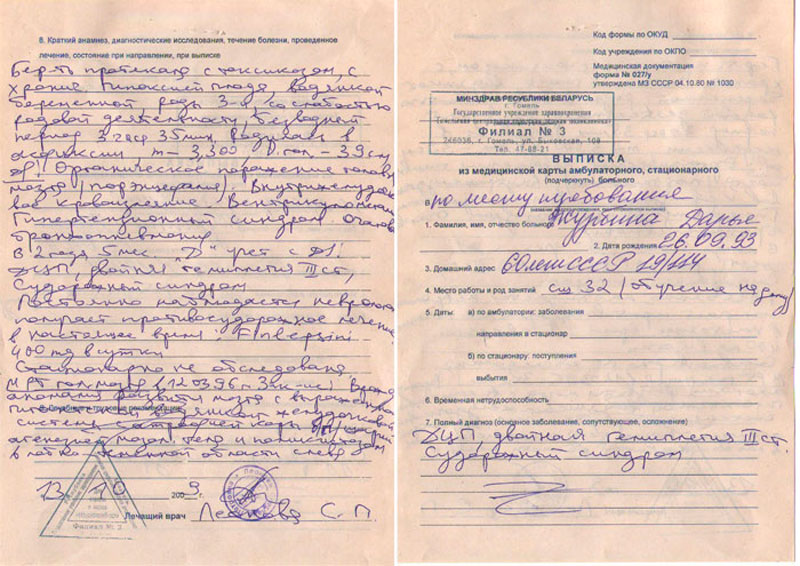 8. Краткий анамнез, диагностические исследования, течение болезни, проведенное
лечение, состояние при направлении, при выписке
Бер-ть протекала с токсикозом, с
хронич. гипоксией плода, водянкой
беременной, роды 3-и, со слабостью
родовой деятельности, безводный
период 3 часа 35 мин, родилась в
асфиксии, m- 3,300, гол - 39 см
Органическое поражение головн
мозга
вое кровоизлияние. Вентрикуломег
Гипертензионный синдром. Очагов
бронхопневмония
В 2 года 5 мес "Д" учет с
ДЦП, двойная гемиплегия III ст,
Судорожный синдром
Постоянно наблюдается невролог
получает противосудорожное лечение
в настоящее время: Finlepsini
400 mg в сутки
Стационарно не обследована
МРТ гол. мозга (12.03.96г. Закл-ие)
аномалия развития мозга с выраженной
водянкой желудочковой
системы коры
агенезией мозол. тела и
в области слева
13 10 2009 г.
Филиал № 3
Лечащий врач С. П.
Код формы по ОКУД
Код учреждения по ОКПО
Медицинская документация
форма № 027/у
утверждена МЗ СССР 04.10.80 № 1030
МИНЗДРАВ РЕСПУБЛИКИ БЕЛАРУСЬ
г. Гомель
Государственное учреждение здравоохранения
Филиал № 3
246036, г. Гомель, ул. Быховская, 109
Тел. 47-88-21
ВЫПИСКА
из медицинской карты амбулаторного, стационарного
(подчеркнуть) больного
В по месту требования
1. Фамилия, имя, отчество больного Дарья
2. Дата рождения 26.09.93
3. Домашний адрес 60 лет СССР 19/114
4. Место работы и род занятий сш 32 (обучение на дому)
5. Даты: а) по амбулатории: заболевания
направления в стационар
б) по стационару: поступления
выбытия
6. Временная нетрудоспособность
7. Полный диагноз (основное заболевание, сопутствующее, осложнение)
ДЦП, двойная гемиплегия III ст.
Судорожный синдром